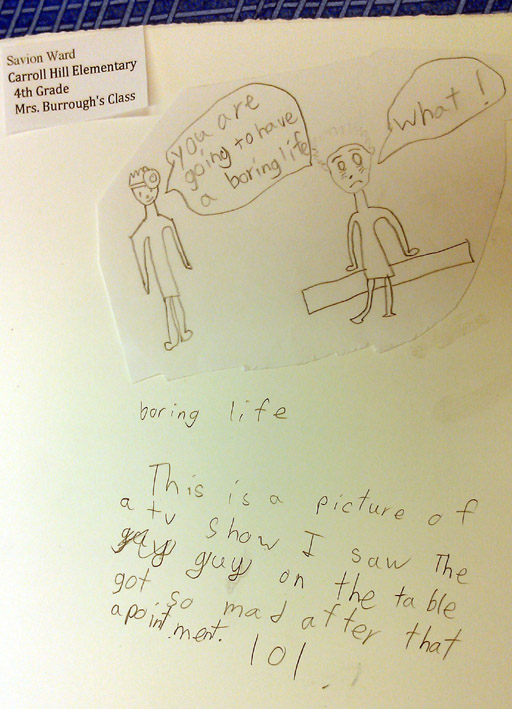 Savion Ward
Carroll Hill Elementary
4th Grade
Mrs. Burrough's Class
you are
going to have
a boring life
What!
boring life
This is a picture of
a tv show I saw The
guy on the table
got so mad after that
apointment. lol